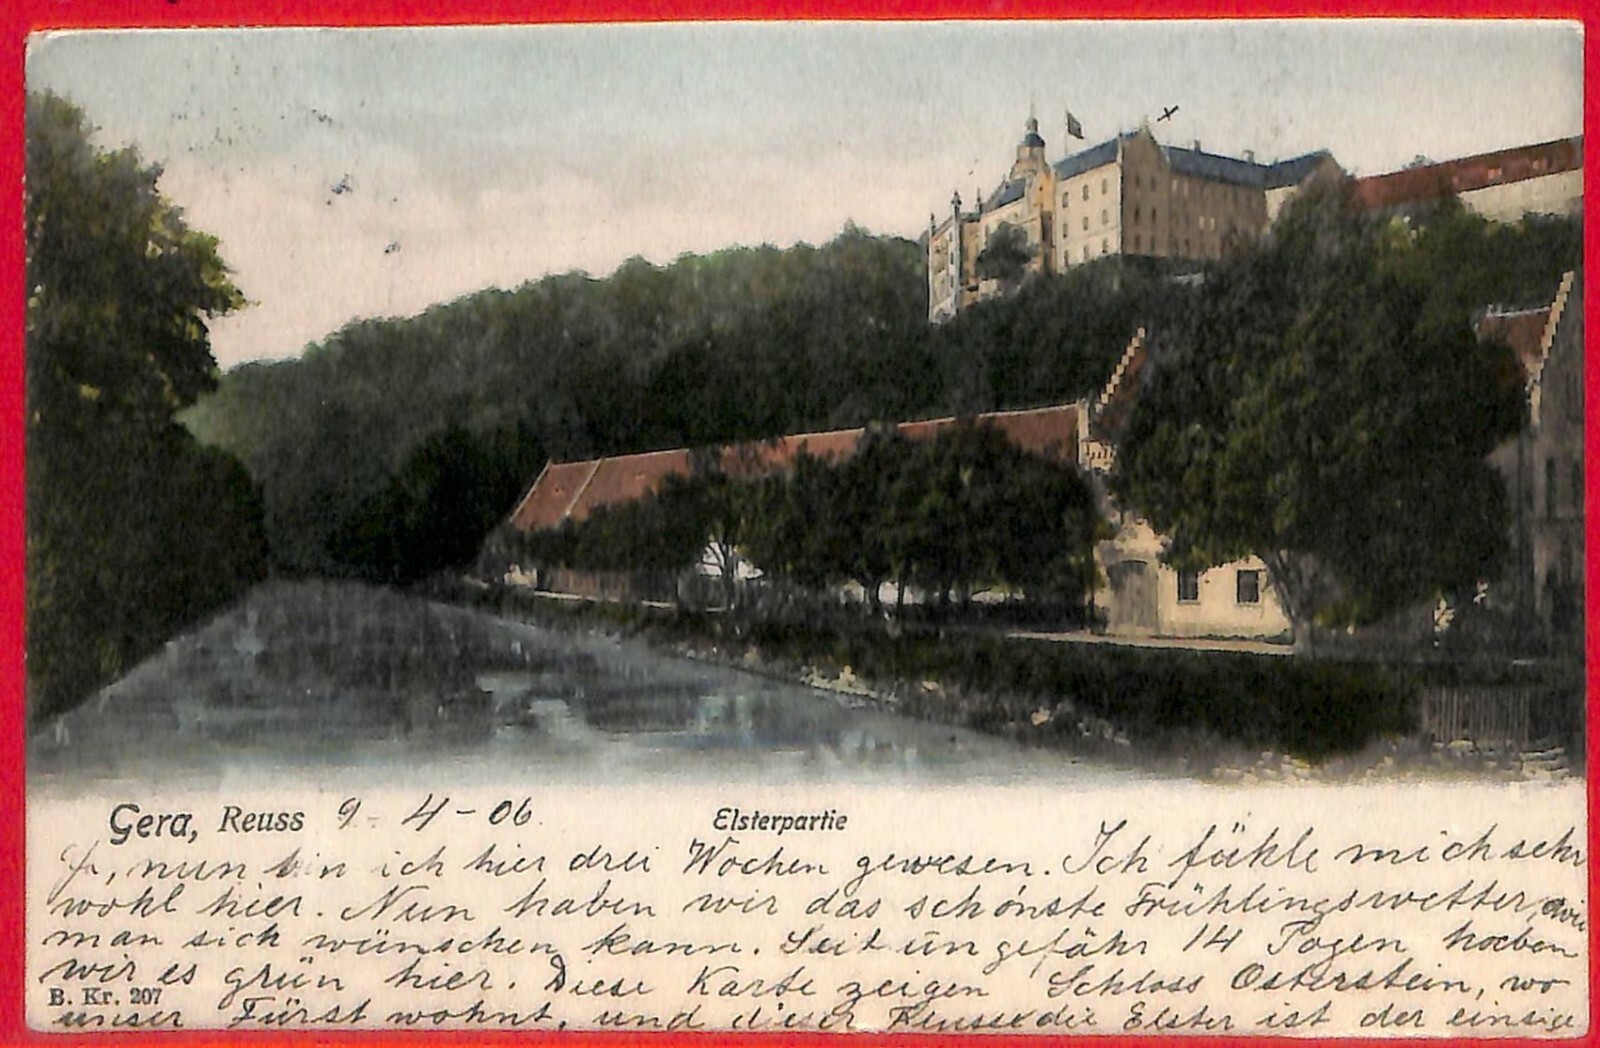 Gera, Reuss 9 - 4 - 06. Elsterpartie
Ja, nun bin ich hier drei Wochen gewesen. Ich fühle mich sehr
wohl hier. Nun haben wir das schönste Frühlingswetter, wie
man sich wünschen kann. Seit ungefähr 14 Tagen haben
wir es grün hier. Diese Karte zeigen Schloss Osterstein, wo
B. Kr. 207
unser Fürst wohnt, und dieser die Elster ist der einsige